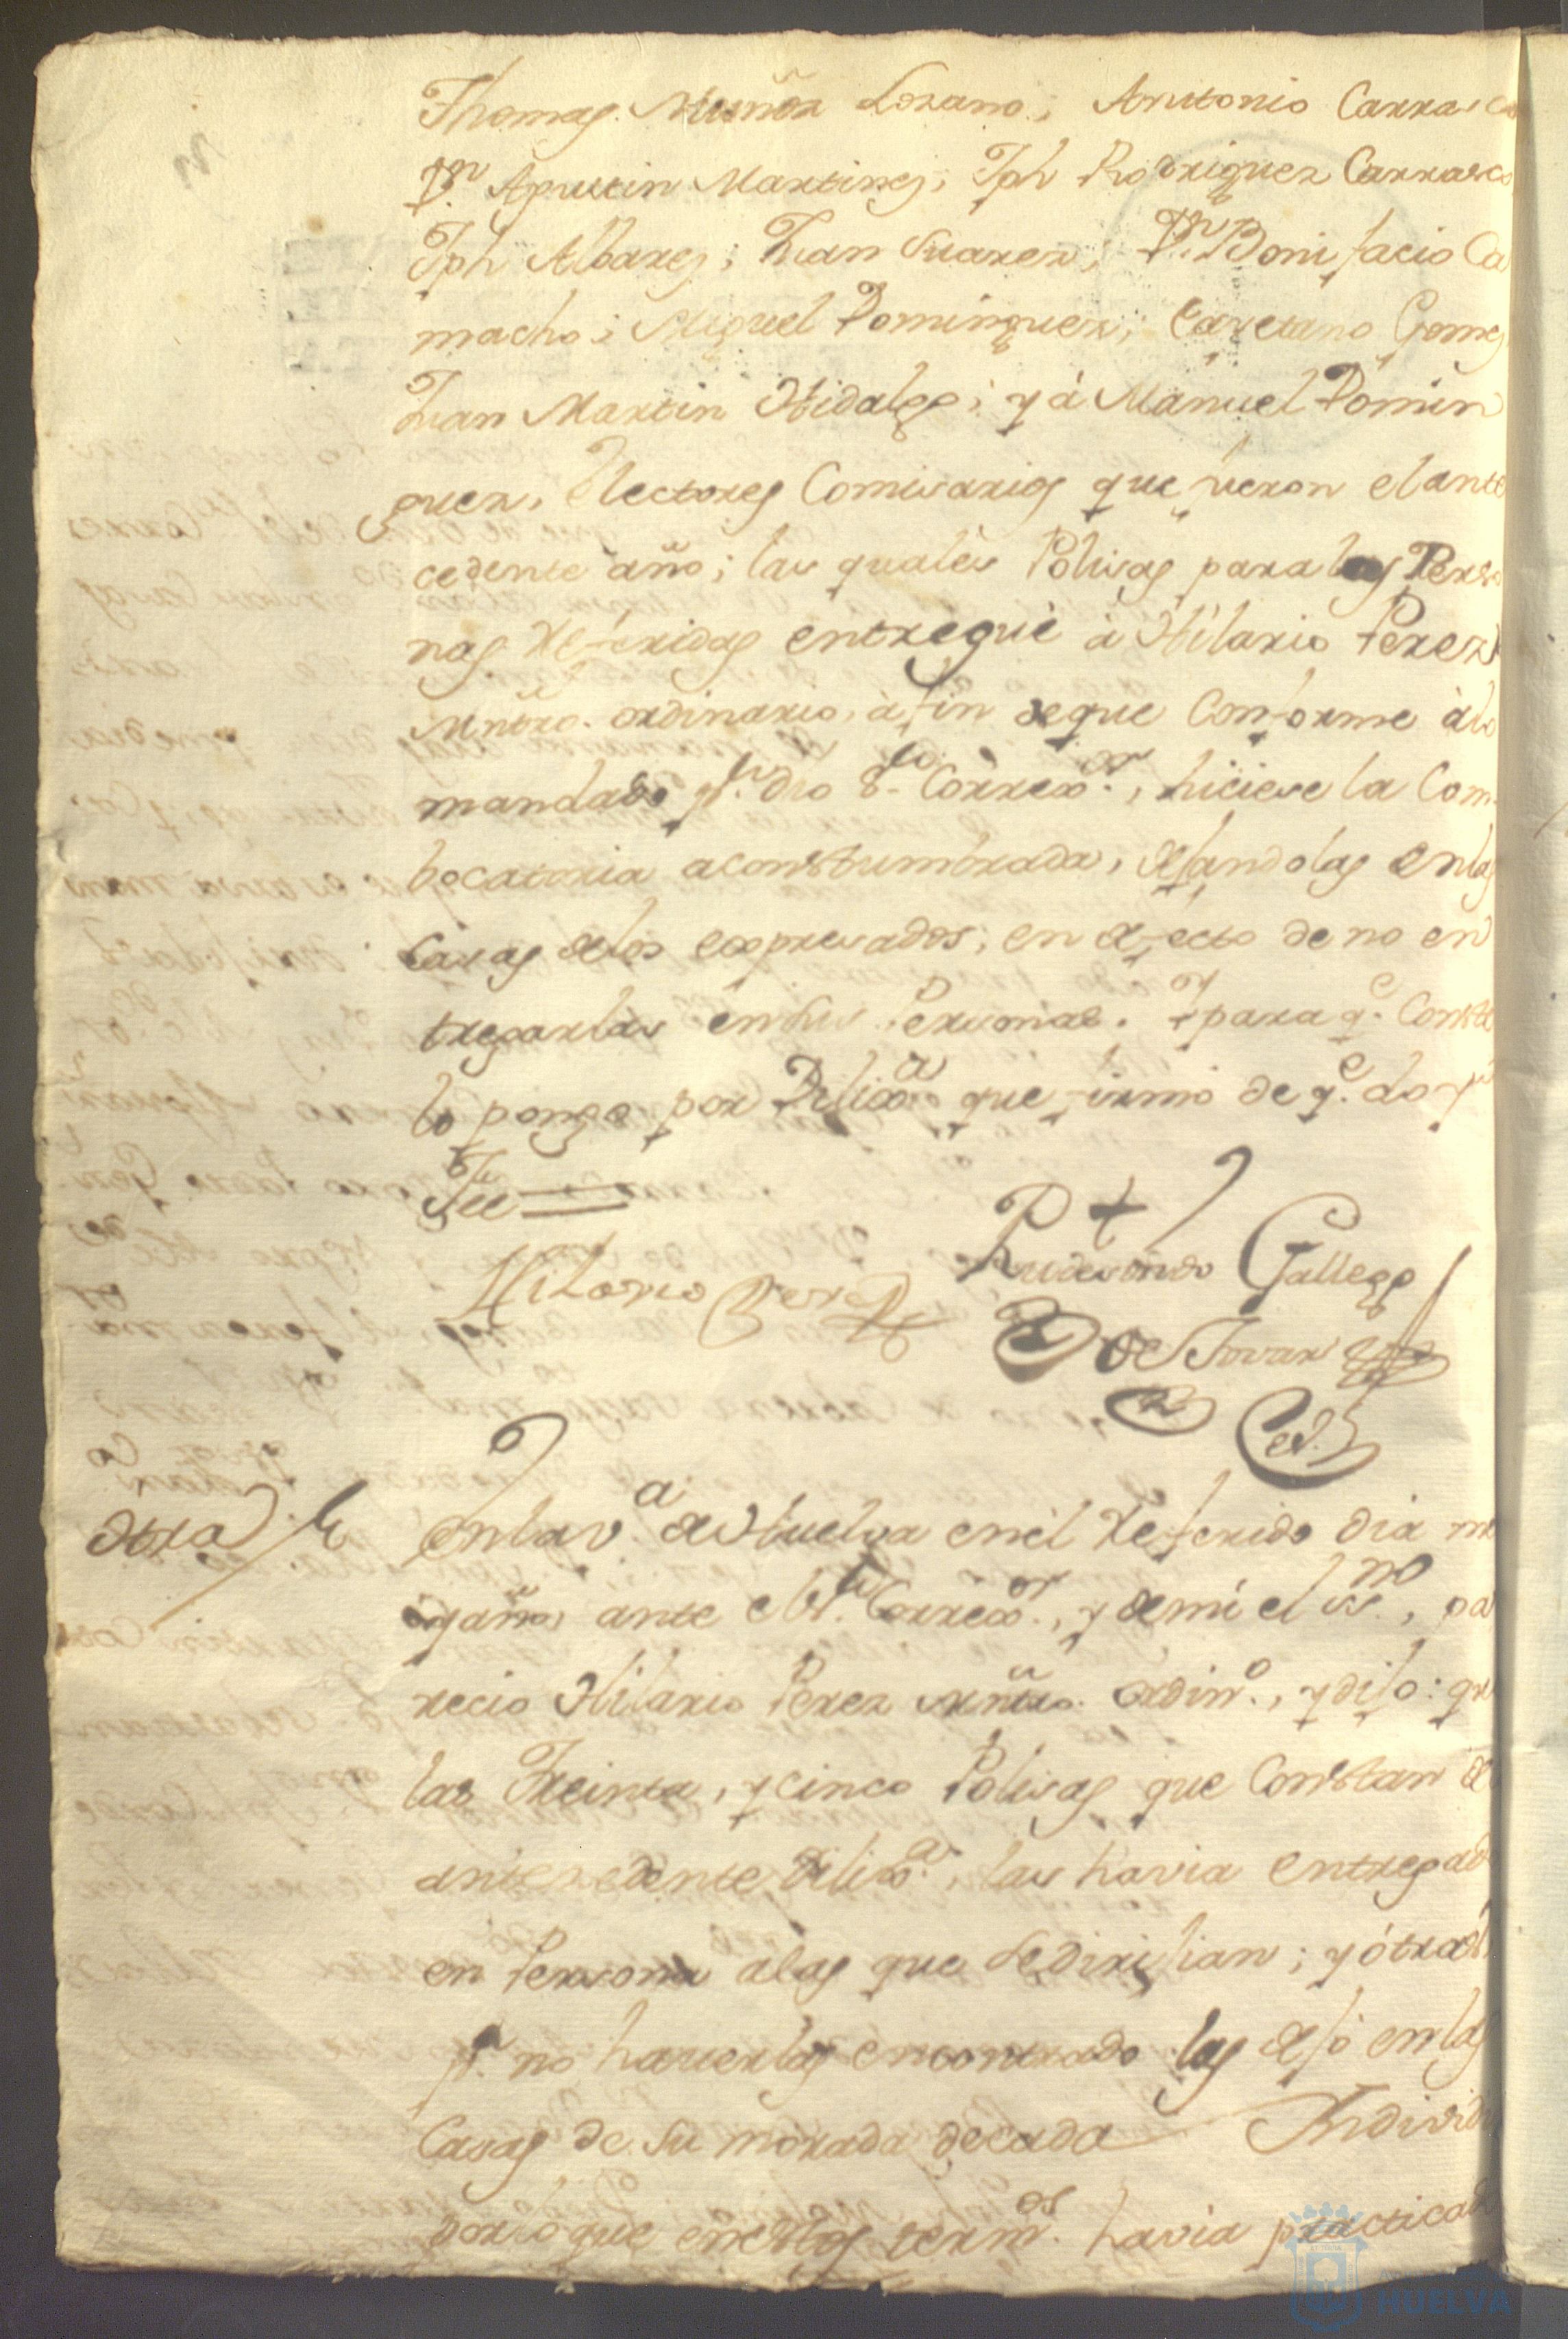 Thomas Muñoz Lozano; Antonio Carrasco
Dn. Agustin Martines; Jph Rodriguez Carrasco
Jph Albares; Juan Suarez; Dn. Bonifacio Ca
macho; Miguel Dominguez; Cayetano Gomes
Juan Martin Hidalgo; y à Manuel Domin
guez, Electores Comisarios que fueron el ante
cedente año; las quales Polisas para las Perso
nas referidas entregué à Hilario Perez
Mñtro. ordinario, à fin de que Conforme à lo
mandado pr. dho Sor. Correxor., hiciese la Com
bocatoria aconstumbrada, dejandolas en las
Casas de los expresados, en defecto de no en
tregarlas en sus Personas. Y para qe. Conste
lo pongo por Dilixa. que firmó de qe. doy
Fee
Hilario Perez
Rudesindo Gallego
de Tovar
Otra
En la va. de Huelva en el referido dia m
y año, ante el Sor. Correxor., y de mi el ssno., pa
recio Hilario Perez Mñtro. ordino., y dijo: que
las Treinta, y cinco Polisas que Constan de
antecedente Dilixa., las havia entregad
en Persona a las que se dirijian; y otras
pr. no haverlas encontrado las dejó en las
Casas de su morada de cada Individ
por lo que en estos termos. havia practicad
HUELVA